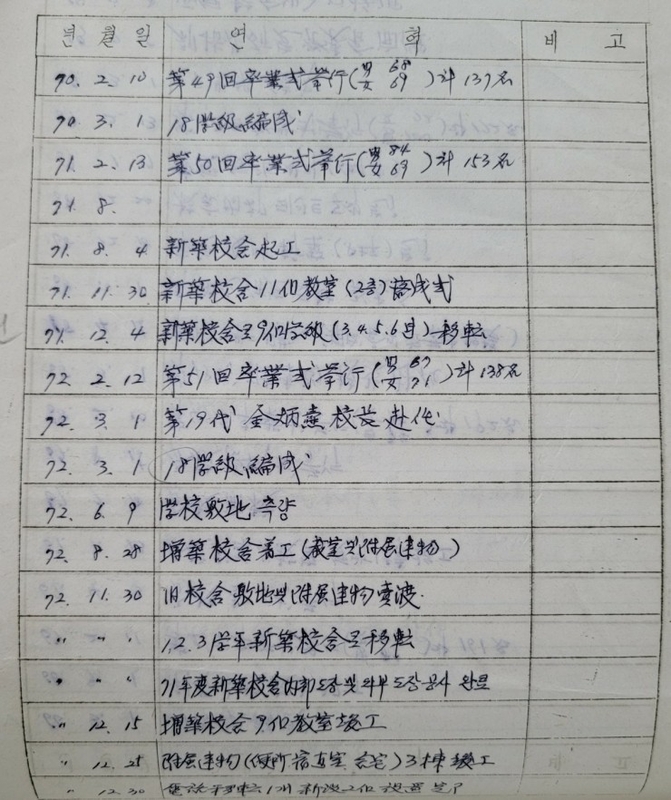 년 월 일 연 혁 비 고
70. 2. 10 第49回卒業式挙行(男 68 女 69)計 137名
70. 3. 1 18学級編成
71. 2. 13 第50回卒業式挙行(男 84 女 69)計 153名
71. 8.
71. 8. 4 新築校舍起工
71. 11. 30 新築校舍 11個教室(2층)落成式
71. 12. 4 新築校舍로 9個学級(3.4.5.6년)移転
72. 2. 12 第51回卒業式挙行(男 67 女 71)計 138名
72. 3. 1 第19代 金炳 校長 赴任
72. 3. 1 18学級編成
72. 6. 9 学校敷地 측량
72. 8. 28 增築校舍着工(教室및附属建物)
72. 11. 30 旧校舍敷地및附属建物賣渡.
" " " 1.2.3学年新築校舍로移転
" " " 71年度新築校舍内部도장및외부도장공사 완료
" 12. 15 增築校舍 9個教室竣工
" 12. 25 附属建物(便所 宿直室 舍宅) 3棟竣工
" 12. 30 電話移転